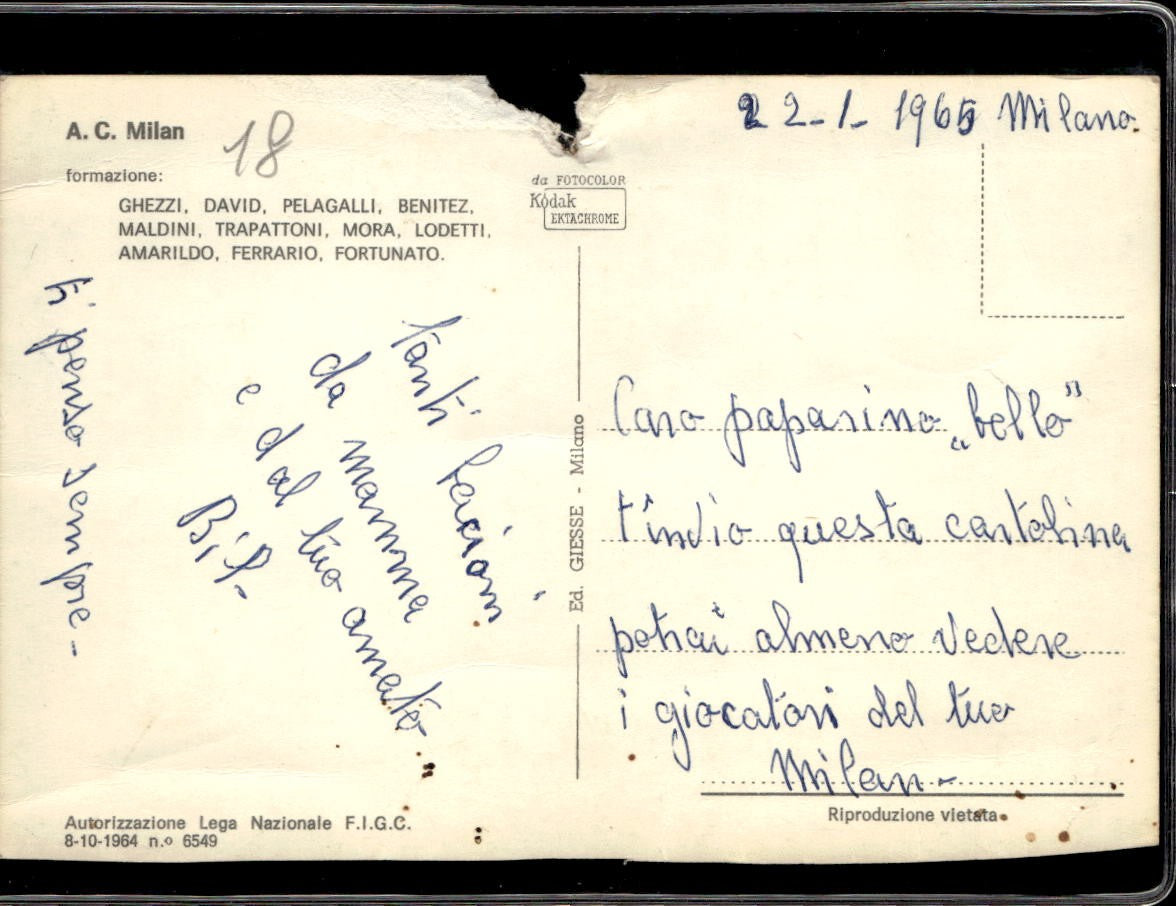 A. C. Milan
18
formazione:
GHEZZI, DAVID, PELAGALLI, BENITEZ,
MALDINI, TRAPATTONI, MORA, LODETTI,
AMARILDO, FERRARIO, FORTUNATO.
da FOTOCOLOR
Kodak
EKTACHROME
22-1-1965 Milano.
Caro paparino „bello”
t'invio questa cartolina
potrai almeno vedere
i giocatori del tuo
Milan-
tanti bacioni
da mamma
e dal tuo amato
Bil-
ti penso sempre-
Ed. GIESSE - Milano
Riproduzione vietata
Autorizzazione Lega Nazionale F.I.G.C.
8-10-1964 n.o 6549